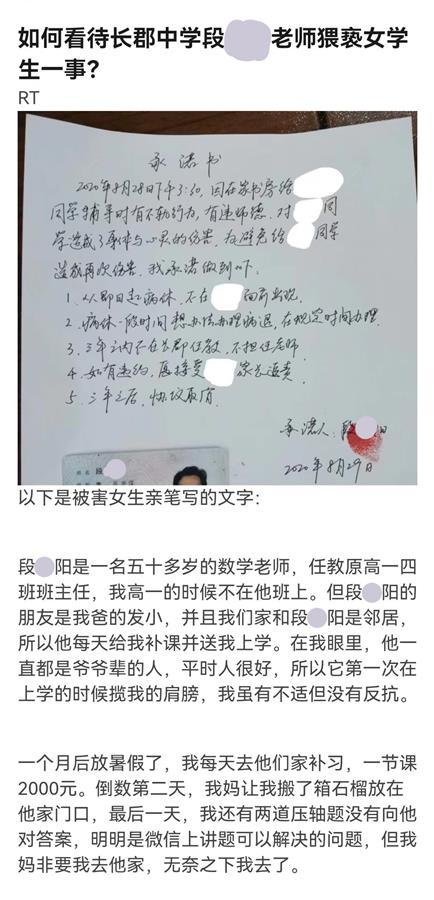 如何看待长郡中学段 老师猥亵女学
生一事？
RT
承诺书
2020年8月28日下午3:30，因在家书房给
同学辅导时有不勒行为，有违师德，对 同
学造成了身体与心灵的伤害，为避免给 同学
造成再次伤害，我承诺做到以下．
1．从即日起病休，不在 面前出现．
2．病休一段时间想办法办理病退，在规定时间办理．
3．三年之内不在长郡任教，不担任老师
4．如有违约，愿接受 家长追责．
5．三年之后，协议取消．
承诺人：段 阳
2020年8月29日
姓名 段
以下是被害女生亲笔写的文字：
段 阳是一名五十多岁的数学老师，任教原高一四
班班主任，我高一的时候不在他班上。但段 阳的
朋友是我爸的发小，并且我们家和段 阳是邻居，
所以他每天给我补课并送我上学。在我眼里，他一
直都是爷爷辈的人，平时人很好，所以它第一次在
上学的时候揽我的肩膀，我虽有不适但没有反抗。
一个月后放暑假了，我每天去他们家补习，一节课
2000元。倒数第二天，我妈让我搬了箱石榴放在
他家门口，最后一天，我还有两道压轴题没有向他
对答案，明明是微信上讲题可以解决的问题，但我
妈非要我去他家，无奈之下我去了。